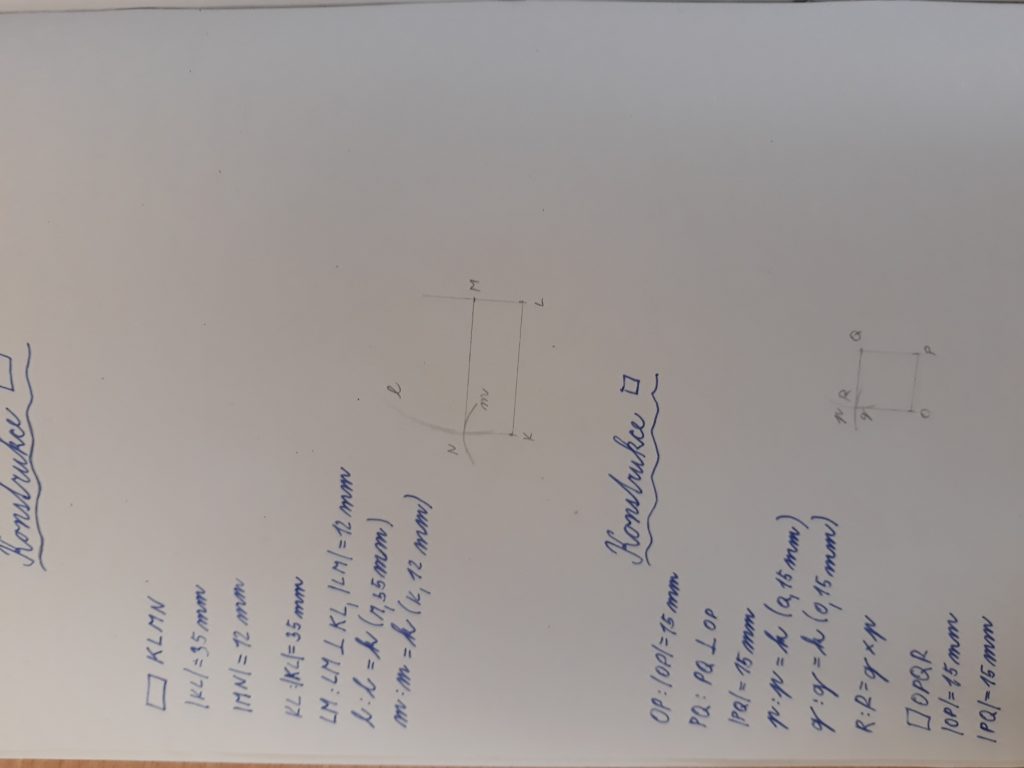 Konstrukce
KLMN
|KL|=35mm
|MN|=12mm
KL:|KL|=35mm
LM:LM⊥KL,|LM|=12mm
l:l=k(M,35mm)
m:m=k(K,12mm)
l
M
N
m
K
L
Konstrukce
OP:|OP|=15mm
PQ:PQ⊥OP
|PQ|=15mm
p:p=k(Q,15mm)
q:q=k(O,15mm)
R:R=q×p
OPQR
|OP|=15mm
|PQ|=15mm
p
R
Q
q
O
P